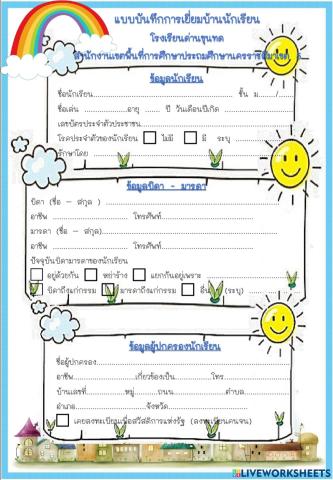 แบบบันทึกการเยี่ยมบ้านนักเรียน
โรงเรียนด่านขุนทด
สำนักงานเขตพื้นที่การศึกษาประถมศึกษานครราชสีมาเขต
ข้อมูลนักเรียน
ชื่อนักเรียน................................................ ชั้น ม............
ชื่อเล่น ..............อายุ ...... ปี วันเดือนปีเกิด ......................
เลขบัตรประจำตัวประชาชน................................................
โรคประจำตัวของนักเรียน ไม่มี มี ระบุ ...................
รักษาโดย ..................................................
ข้อมูลบิดา - มารดา
บิดา (ชื่อ – สกุล ) ..................................................
อาชีพ .......................... โทรศัพท์..........................
มารดา (ชื่อ – สกุล)..................................................
อาชีพ .......................... โทรศัพท์..........................
ปัจจุบันบิดามารดาของนักเรียน
อยู่ด้วยกัน หย่าร้าง แยกกันอยู่เพราะ ......................
บิดาถึงแก่กรรม มารดาถึงแก่กรรม อื่น (ระบุ) ..............
ข้อมูลผู้ปกครองนักเรียน
ชื่อผู้ปกครอง..................................................
อาชีพ....................เกี่ยวข้องเป็น..............โทร..............
บ้านเลขที่............หมู่.........ถนน..................ตำบล............
อำเภอ........................จังหวัด..............................
เคยลงทะเบียนเพื่อสวัสดิการแห่งรัฐ (ลงทะเบียนคนจน)
LIVEWORKSHEETS